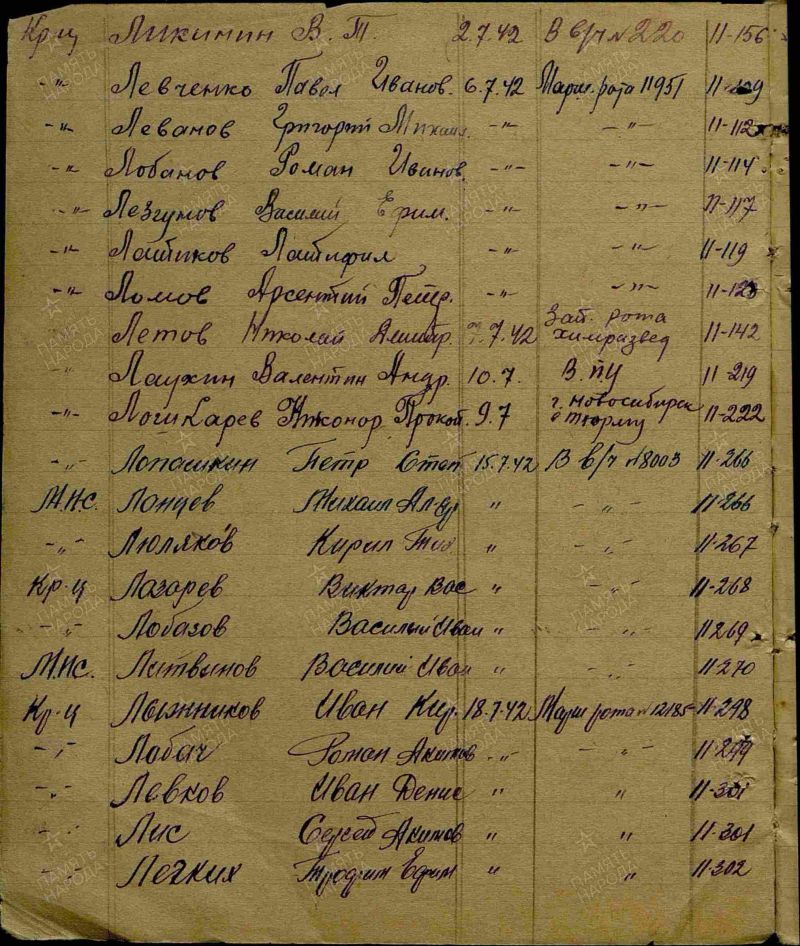 Кр-ц Ликинин В. Т. 2.7.42 В в/ч № 220 11-156
-"- Левченко Павел Иванов. 6.7.42 Марш. рота 11951
-"- Леванов Григорий Михаил. -"- -"- 11-112
-"- Лобанов Роман Иванов. -"- -"- 11-114
-"- Лезгунов Василий Ефим. -"- -"- 11-117
-"- Латиков Латифил -"- -"- 11-119
-"- Ломов Арсентий Петр. -"- -"-
-"- Летов Николай Дмитр. 7.42 Зап. рота химразвед 11-142
-"- Лаухин Валентин Андр. 10.7. В.ПУ 11-219
-"- Лошкарев Никонор Прокоп. 9.7 г. Новосибирск в тюрму 11-222
-"- Лопашкин Петр Степ 15.7.42 В в/ч №8003 11-266
М.Н.С. Лонцев Михаил " -"- 11-266
-"- Люляков Кирил Тих. " -"- 11-267
Кр-ц Лазарев Виктар Вас " -"- 11-268
-"- Лобазов Василий Иван " -"- 11269
М.Н.С. Литвинов Василий Иван " -"- 11-270
Кр-ц Лыжников Иван Кир. 18.7.42 Марш рота №12185 11-298
-"- Лобач Роман Акимов -"- " 11-299
-"- Левков Иван Денис " " 11-301
-"- Лис Сергей Акимов " " 11-301
-"- Легких Трофим Ефим " " 11-302
ПАМЯТЬ НАРОДА